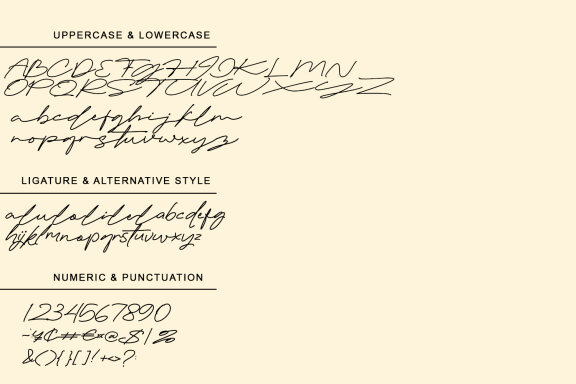 UPPERCASE & LOWERCASE
ABCDEFGHIJKLMN
OPQRSTUVWXYZ
abcdefghijklm
nopqrstuvwxyz
LIGATURE & ALTERNATIVE STYLE
abcdefg
hijklmnopqrstuvwxyz
NUMERIC & PUNCTUATION
1234567890
@ $ | %
&(){}[]!+<>?